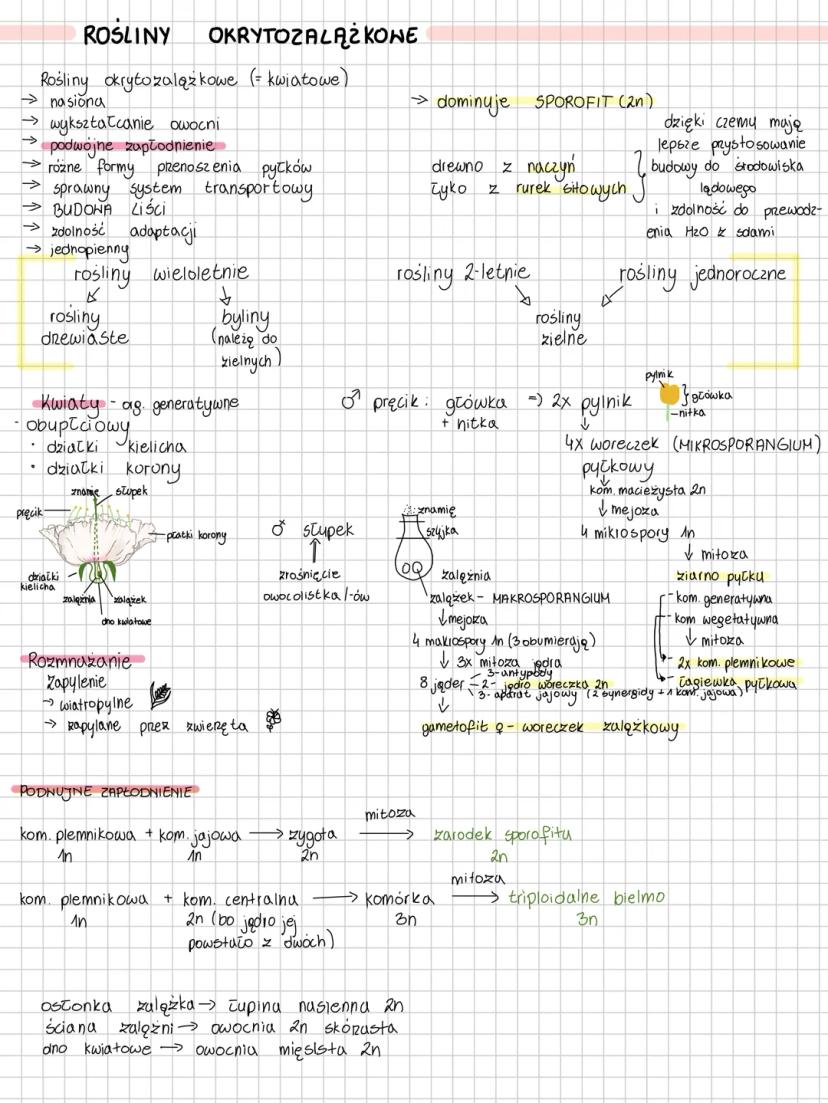 ROŚLINY OKRYTOZALĄŻKOWE
Rośliny okrytozalążkowe (= kwiatowe)
→ nasiona
→ wykształcanie owocni
→ podwójne zapłodnienie
→ różne formy przenoszenia pyłków
→ sprawny system transportowy
→ BUDOWA liści
→ zdolność adaptacji
→ jednopienny
→ dominuje SPOROFIT (2n)
drewno z naczyń
łyko z rurek sitowych
dzięki czemu mają
lepsze prystosowanie
budowy do środowiska
lądowego
i zdolność do przewodz-
enia H2O z solami
rośliny wieloletnie
rośliny drzewiaste
byliny
(należą do
zielnych)
rośliny 2-letnie
rośliny jednoroczne
rośliny
zielne
Kwiaty - org. generatywne
- obupłciowy
· działki kielicha
· działki korony
znamię
słupek
pręcik
płatki korony
działki
kielicha
zalążnia
zalążek
dno kwiatowe
♂ pręcik: główka => 2x pylnik
+ nitka
pylnik
} główka
- nitka
↓
4x woreczek (MIKROSPORANGIUM)
pyłkowy
↓
kom. macieżysta 2n
↓ mejoza
4 mikrospory 1n
↓ mitoza
ziarno pyłku
- kom. generatywna
- kom wegetatywna
↓ mitoza
→ 2x kom. plemnikowe
→ łagiewka pyłkowa
♂ słupek
↑
zrośnięcie
owocolistka/-ów
znamię
szyjka
zalążnia
zalążek - MAKROSPORANGIUM
↓ mejoza
4 makrospory 1n (3 obumierają)
↓ 3x mitoza jądra
3- antypody
8 jąder - 2- jądro woreczka 2n
3- aparat jajowy (2 synergidy + 1 kom. jajowa)
↓
gametofit ♀ - woreczek zalążkowy
Rozmnażanie
Zapylenie
→ wiatropylne
→ zapylane przez zwierzęta
PODWÓJNE ZAPŁODNIENIE
kom. plemnikowa + kom. jajowa → zygota mitoza → zarodek sporofitu
1n 1n 2n 2n
kom. plemnikowa + kom. centralna → komórka mitoza → triploidalne bielmo
1n 2n (bo jądro jej 3n 3n
powstało z dwóch)
osłonka zalążka → łupina nasienna 2n
ściana zalążni → owocnia 2n skórzasta
dno kwiatowe → owocnia mięsista 2n